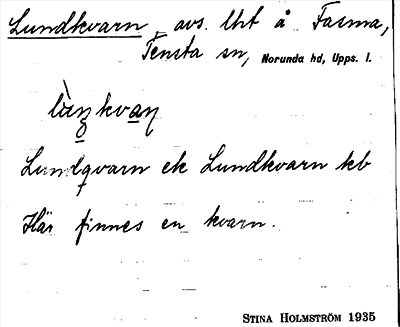 Lundkvarn avs. lht å Fasma,
Tensta sn, Norunda hd, Upps. l.
Lundqvarn ek Lundkvarn kb
Här finnes en kvarn.
STINA HOLMSTRÖM 1935